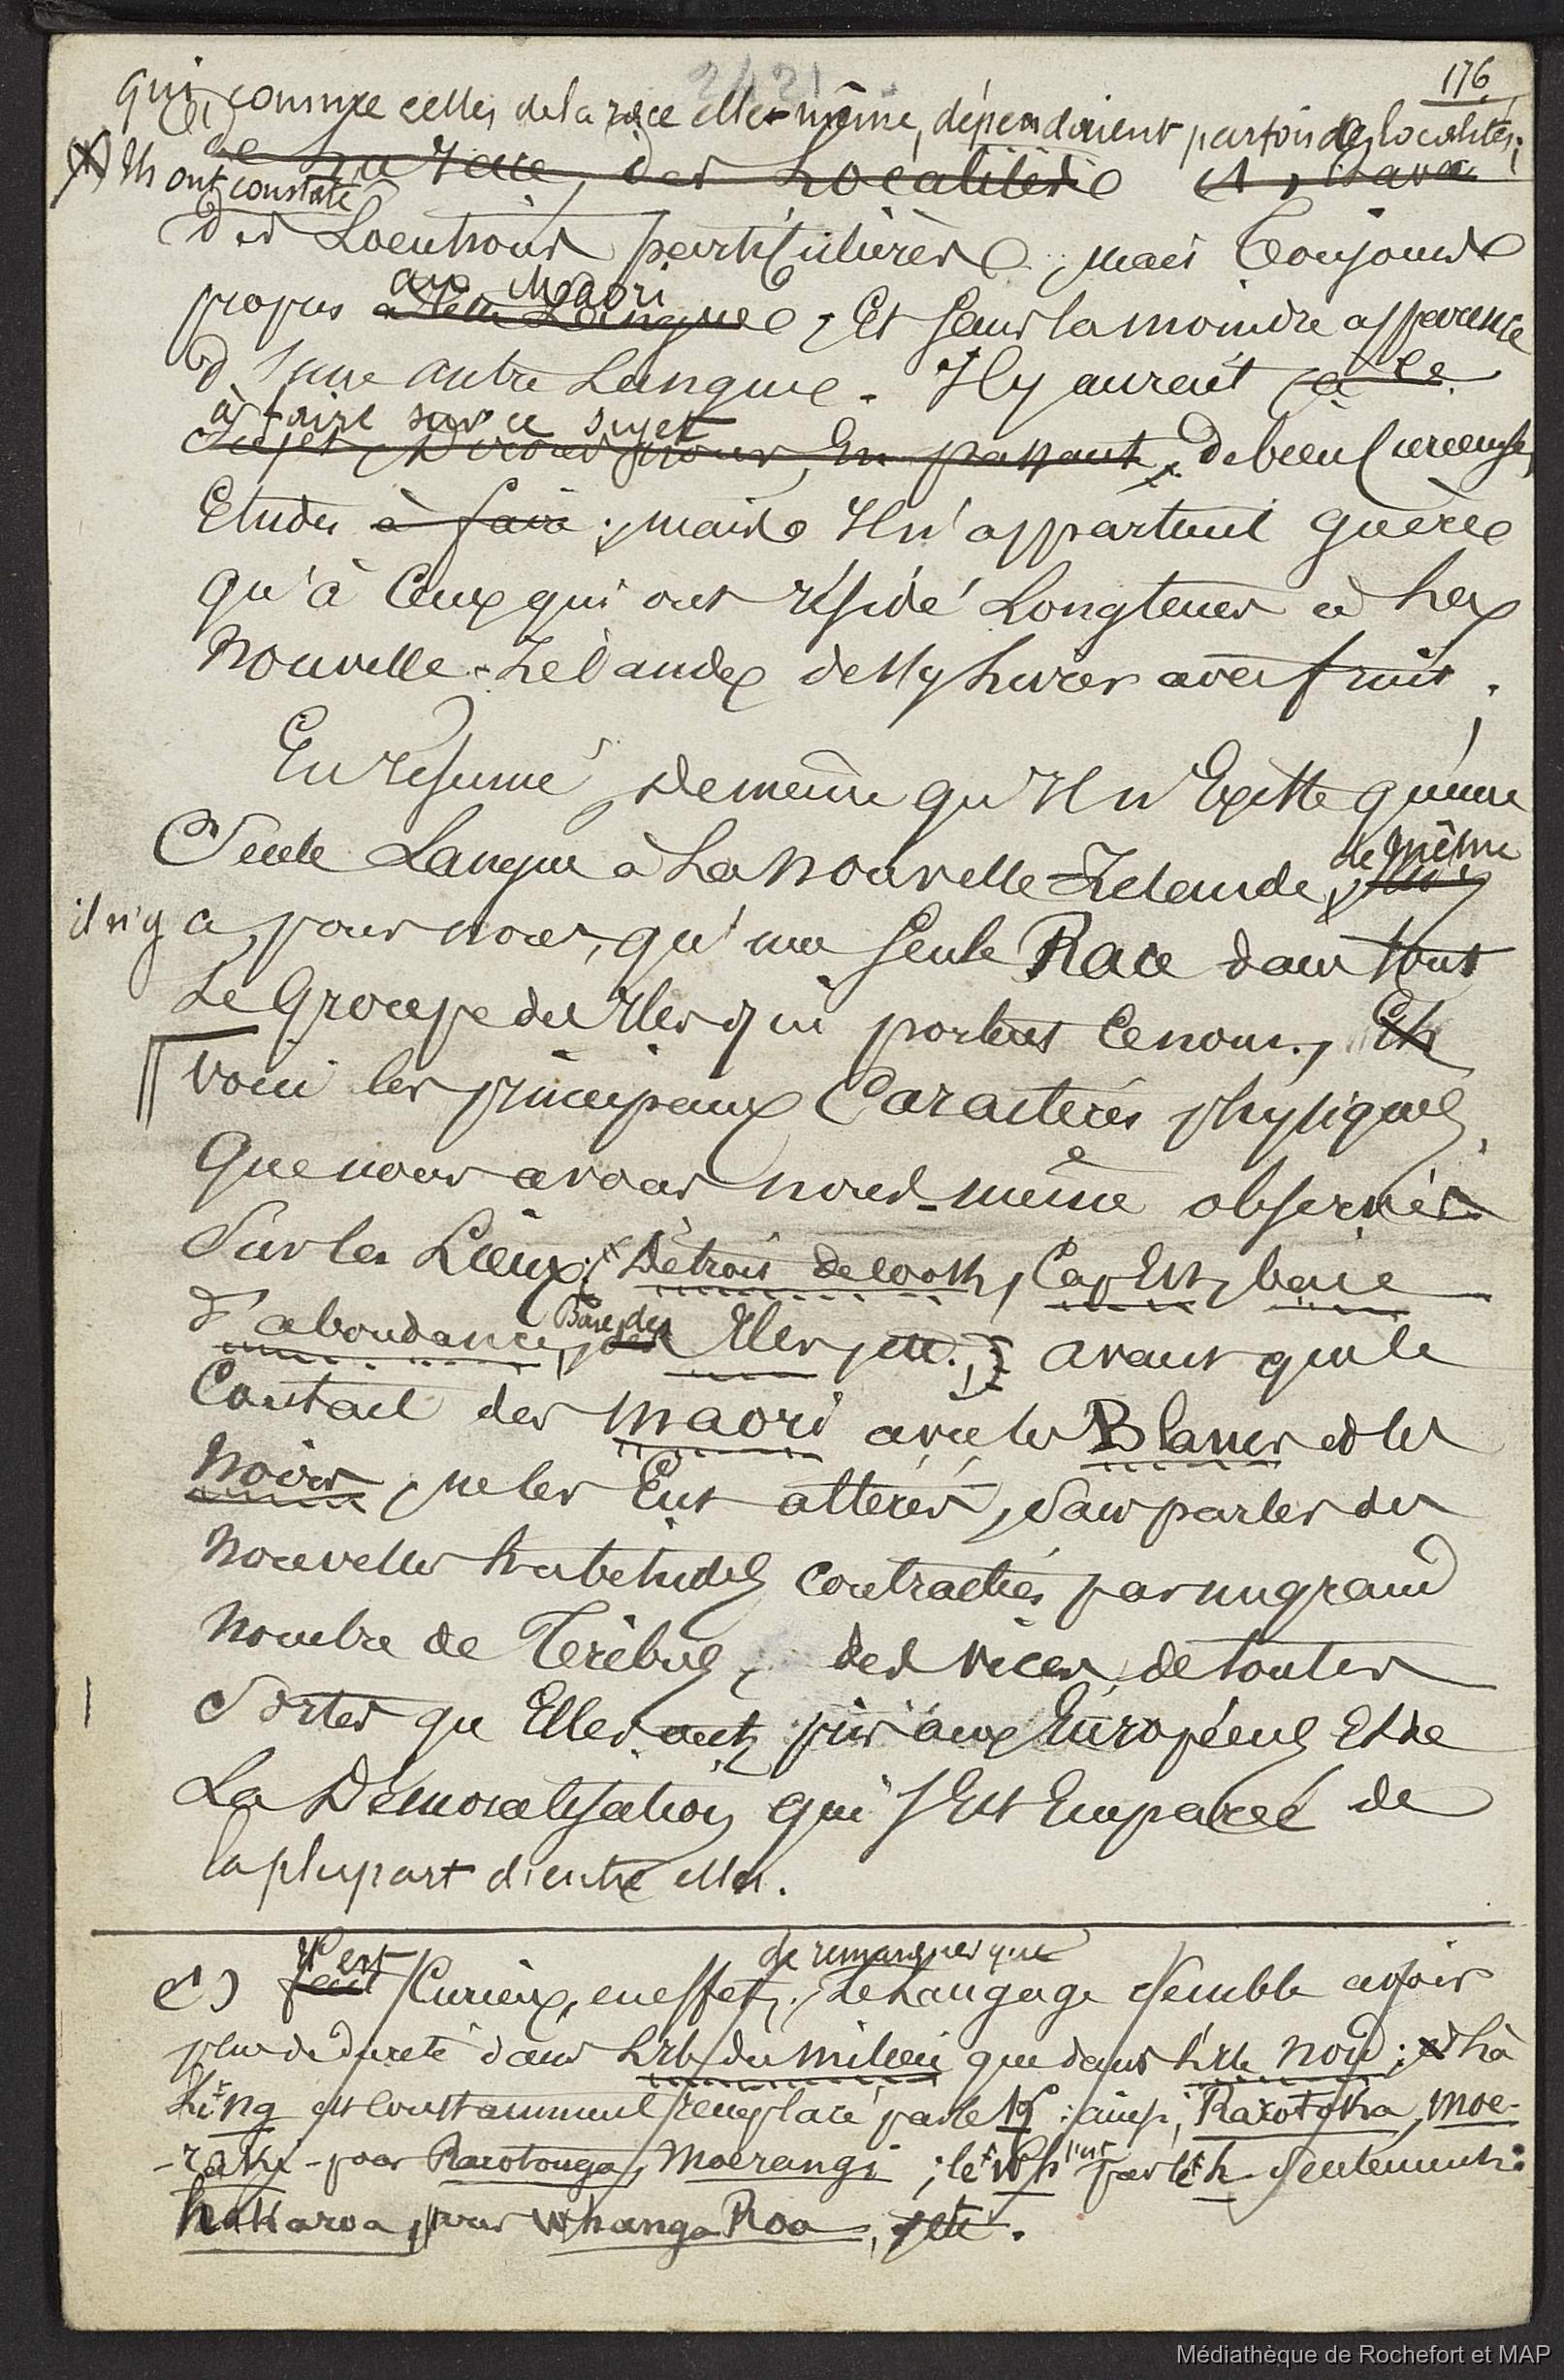 2421
176
qui, comme celles de la race elle-même, dépendaient parfois des localités;
de la race, des Localités
Ils ont constaté
des Locutions particulières, mais toujours
au Maori
propres à cette Langue, Et sans la moindre apparence
d'une autre Langue. Il y aurait à ce
à faire sur ce sujet
Sujet, Disons nous, En passant, de bien curieuses
Etudes à faire; mais Il n'appartient guère
qu'à Ceux qui ont résidé Longtems à La
Nouvelle-Zélande de s'y Livrer avec fruit.
En résumé, de même qu'Il n'Existe qu'une
Seule Langue à La Nouvelle-Zelande, de même
il n'y a, pour nous, qu'une seule Race dans tout
Le Groupe des Iles qui portent ce nom, Et
voici les principaux Caractères physiques
Que nous avons nous-même observés
Sur les Lieux, (Détroit de Cook, Cap Est, baie
d'abondance, Baie des Iles, etc.) avant que le
Contact des Maori avec les Blancs et les
Noirs, ne les Eut altérés, Sans parler des
Nouvelles habitudes contractées par un grand
Nombre de Tribus, des vices de toutes
Sortes qu'Elles ont pris aux Européens et de
La Démoralisation qui s'Est Emparée de
la plupart d'entre elles.
(1) Il est curieux, en effet, de remarquer que Le Langage semble avoir
plus de dureté dans L'Ile du milieu que dans L'Ile Nord; Là
Le ng est constamment remplacé par le K: ainsi, Rarotoka, Moe-
-raki - pour Rarotonga, Moerangi; le Wh l'est par le h seulement:
hakaroa, pour WhangaRoa, etc.
Médiathèque de Rochefort et MAP